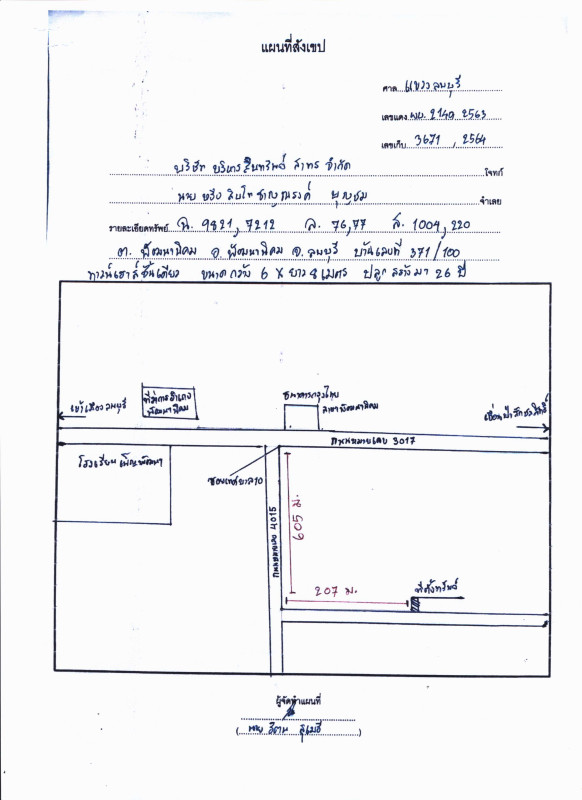 แผนที่สังเขป
ศาล แขวงลพบุรี
เลขแดง ผบ. 2149 / 2563
เลขเก็บ 3671 / 2564
บริษัท บริหารสินทรัพย์ สาทร จำกัด โจทก์
นาย หรือ สิบโท ชาญณรงค์ บุญชม จำเลย
รายละเอียดทรัพย์ ฉ. 9821, 7212 ล. 76,77 ส. 1004, 220
ต. พัฒนานิคม อ. พัฒนานิคม จ. ลพบุรี บ้านเลขที่ 371/100
ทาวน์เฮาส์ชั้นเดียว ขนาดกว้าง 6 x ยาว 8 เมตร ปลูกสร้างมา 26 ปี
เข้าเมืองลพบุรี
ที่ว่าการอำเภอ
พัฒนานิคม
ธนาคารกรุงไทย
สาขาพัฒนานิคม
เขื่อนป่าสักชลสิทธิ์
ทางหมายเลข 3017
โรงเรียน
ซอยเทศบาล 10
ทางหมายเลข 4015
605 ม.
207 ม.
ที่ตั้งทรัพย์
ผู้จัดทำแผนที่
( นาย )